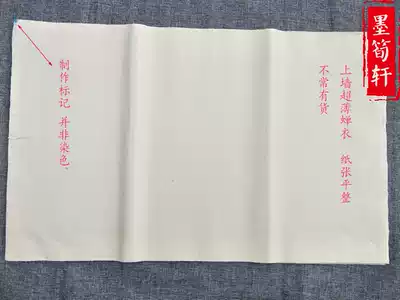 墨筍轩
上墙超薄蝉衣 纸张平整
不常有货
制作标记 并非染色.